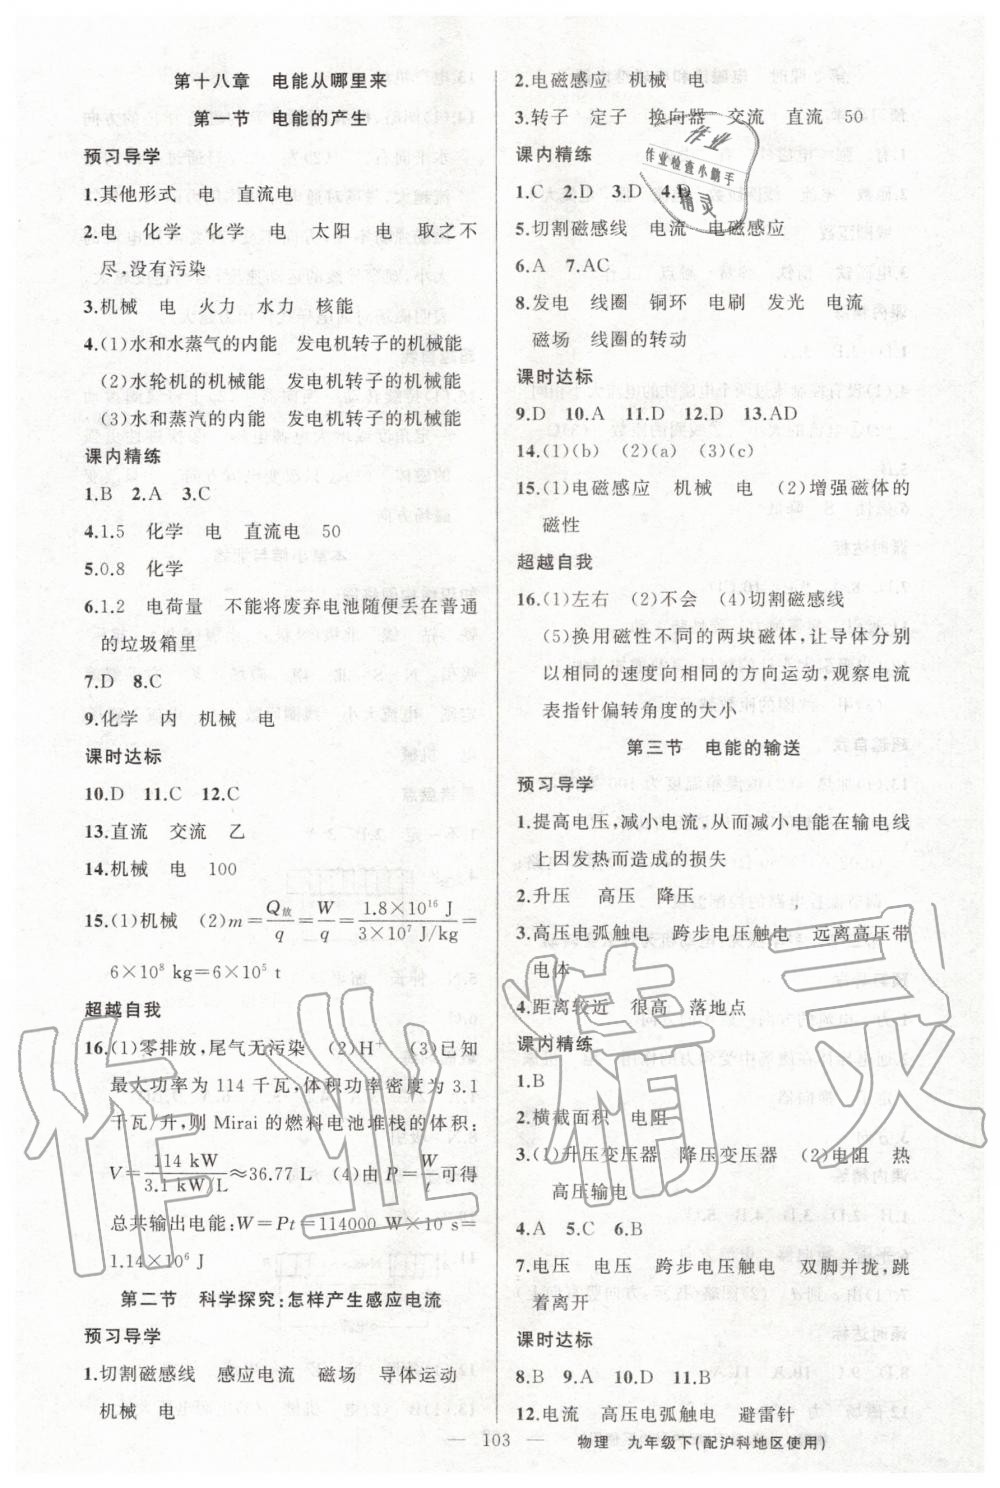 第十八章 电能从哪里来
第一节 电能的产生
预习导学
1.其他形式 电 直流电
2.电 化学 化学 电 太阳 电 取之不
尽,没有污染
3.机械 电 火力 水力 核能
4.(1)水和水蒸气的内能 发电机转子的机械能
(2)水轮机的机械能 发电机转子的机械能
(3)水和蒸汽的内能 发电机转子的机械能
课内精练
1.B 2.A 3.C
4.1.5 化学 电 直流电 50
5.0.8 化学
6.1.2 电荷量 不能将废弃电池随便丢在普通
的垃圾箱里
7.D 8.C
9.化学 内 机械 电
课时达标
10.D 11.C 12.C
13.直流 交流 乙
14.机械 电 100
15.(1)机械 (2)m=Q放/q=W/q=1.8×10^16 J/3×10^7 J/kg=
6×10^8 kg=6×10^5 t
超越自我
16.(1)零排放,尾气无污染 (2)H^+ (3)已知
最大功率为 114 千瓦,体积功率密度为 3.1
千瓦/升,则 Mirai 的燃料电池堆栈的体积:
V=114 kW/3.1 kW/L≈36.77 L (4)由 P=W/t可得
总共输出电能:W=Pt=114000 W×10 s=
1.14×10^6 J
第二节 科学探究:怎样产生感应电流
预习导学
1.切割磁感线 感应电流 磁场 导体运动
机械 电
2.电磁感应 机械 电
3.转子 定子 换向器 交流 直流 50
课内精练
1.C 2.D 3.D 4.D
5.切割磁感线 电流 电磁感应
6.A 7.AC
8.发电 线圈 铜环 电刷 发光 电流
磁场 线圈的转动
课时达标
9.D 10.A 11.D 12.D 13.AD
14.(1)(b) (2)(a) (3)(c)
15.(1)电磁感应 机械 电 (2)增强磁体的
磁性
超越自我
16.(1)左右 (2)不会 (4)切割磁感线
(5)换用磁性不同的两块磁体,让导体分别
以相同的速度向相同的方向运动,观察电流
表指针偏转角度的大小
第三节 电能的输送
预习导学
1.提高电压,减小电流,从而减小电能在输电线
上因发热而造成的损失
2.升压 高压 降压
3.高压电弧触电 跨步电压触电 远离高压带
电体
4.距离较近 很高 落地点
课内精练
1.B
2.横截面积 电阻
3.(1)升压变压器 降压变压器 (2)电阻 热
高压输电
4.A 5.C 6.B
7.电压 电压 跨步电压触电 双脚并拢,跳
着离开
课时达标
8.B 9.A 10.D 11.B
12.电流 高压电弧触电 避雷针
— 103 — 物理 九年级下(配沪科地区使用)
作业
作业检查小帮手
精灵
作业精灵